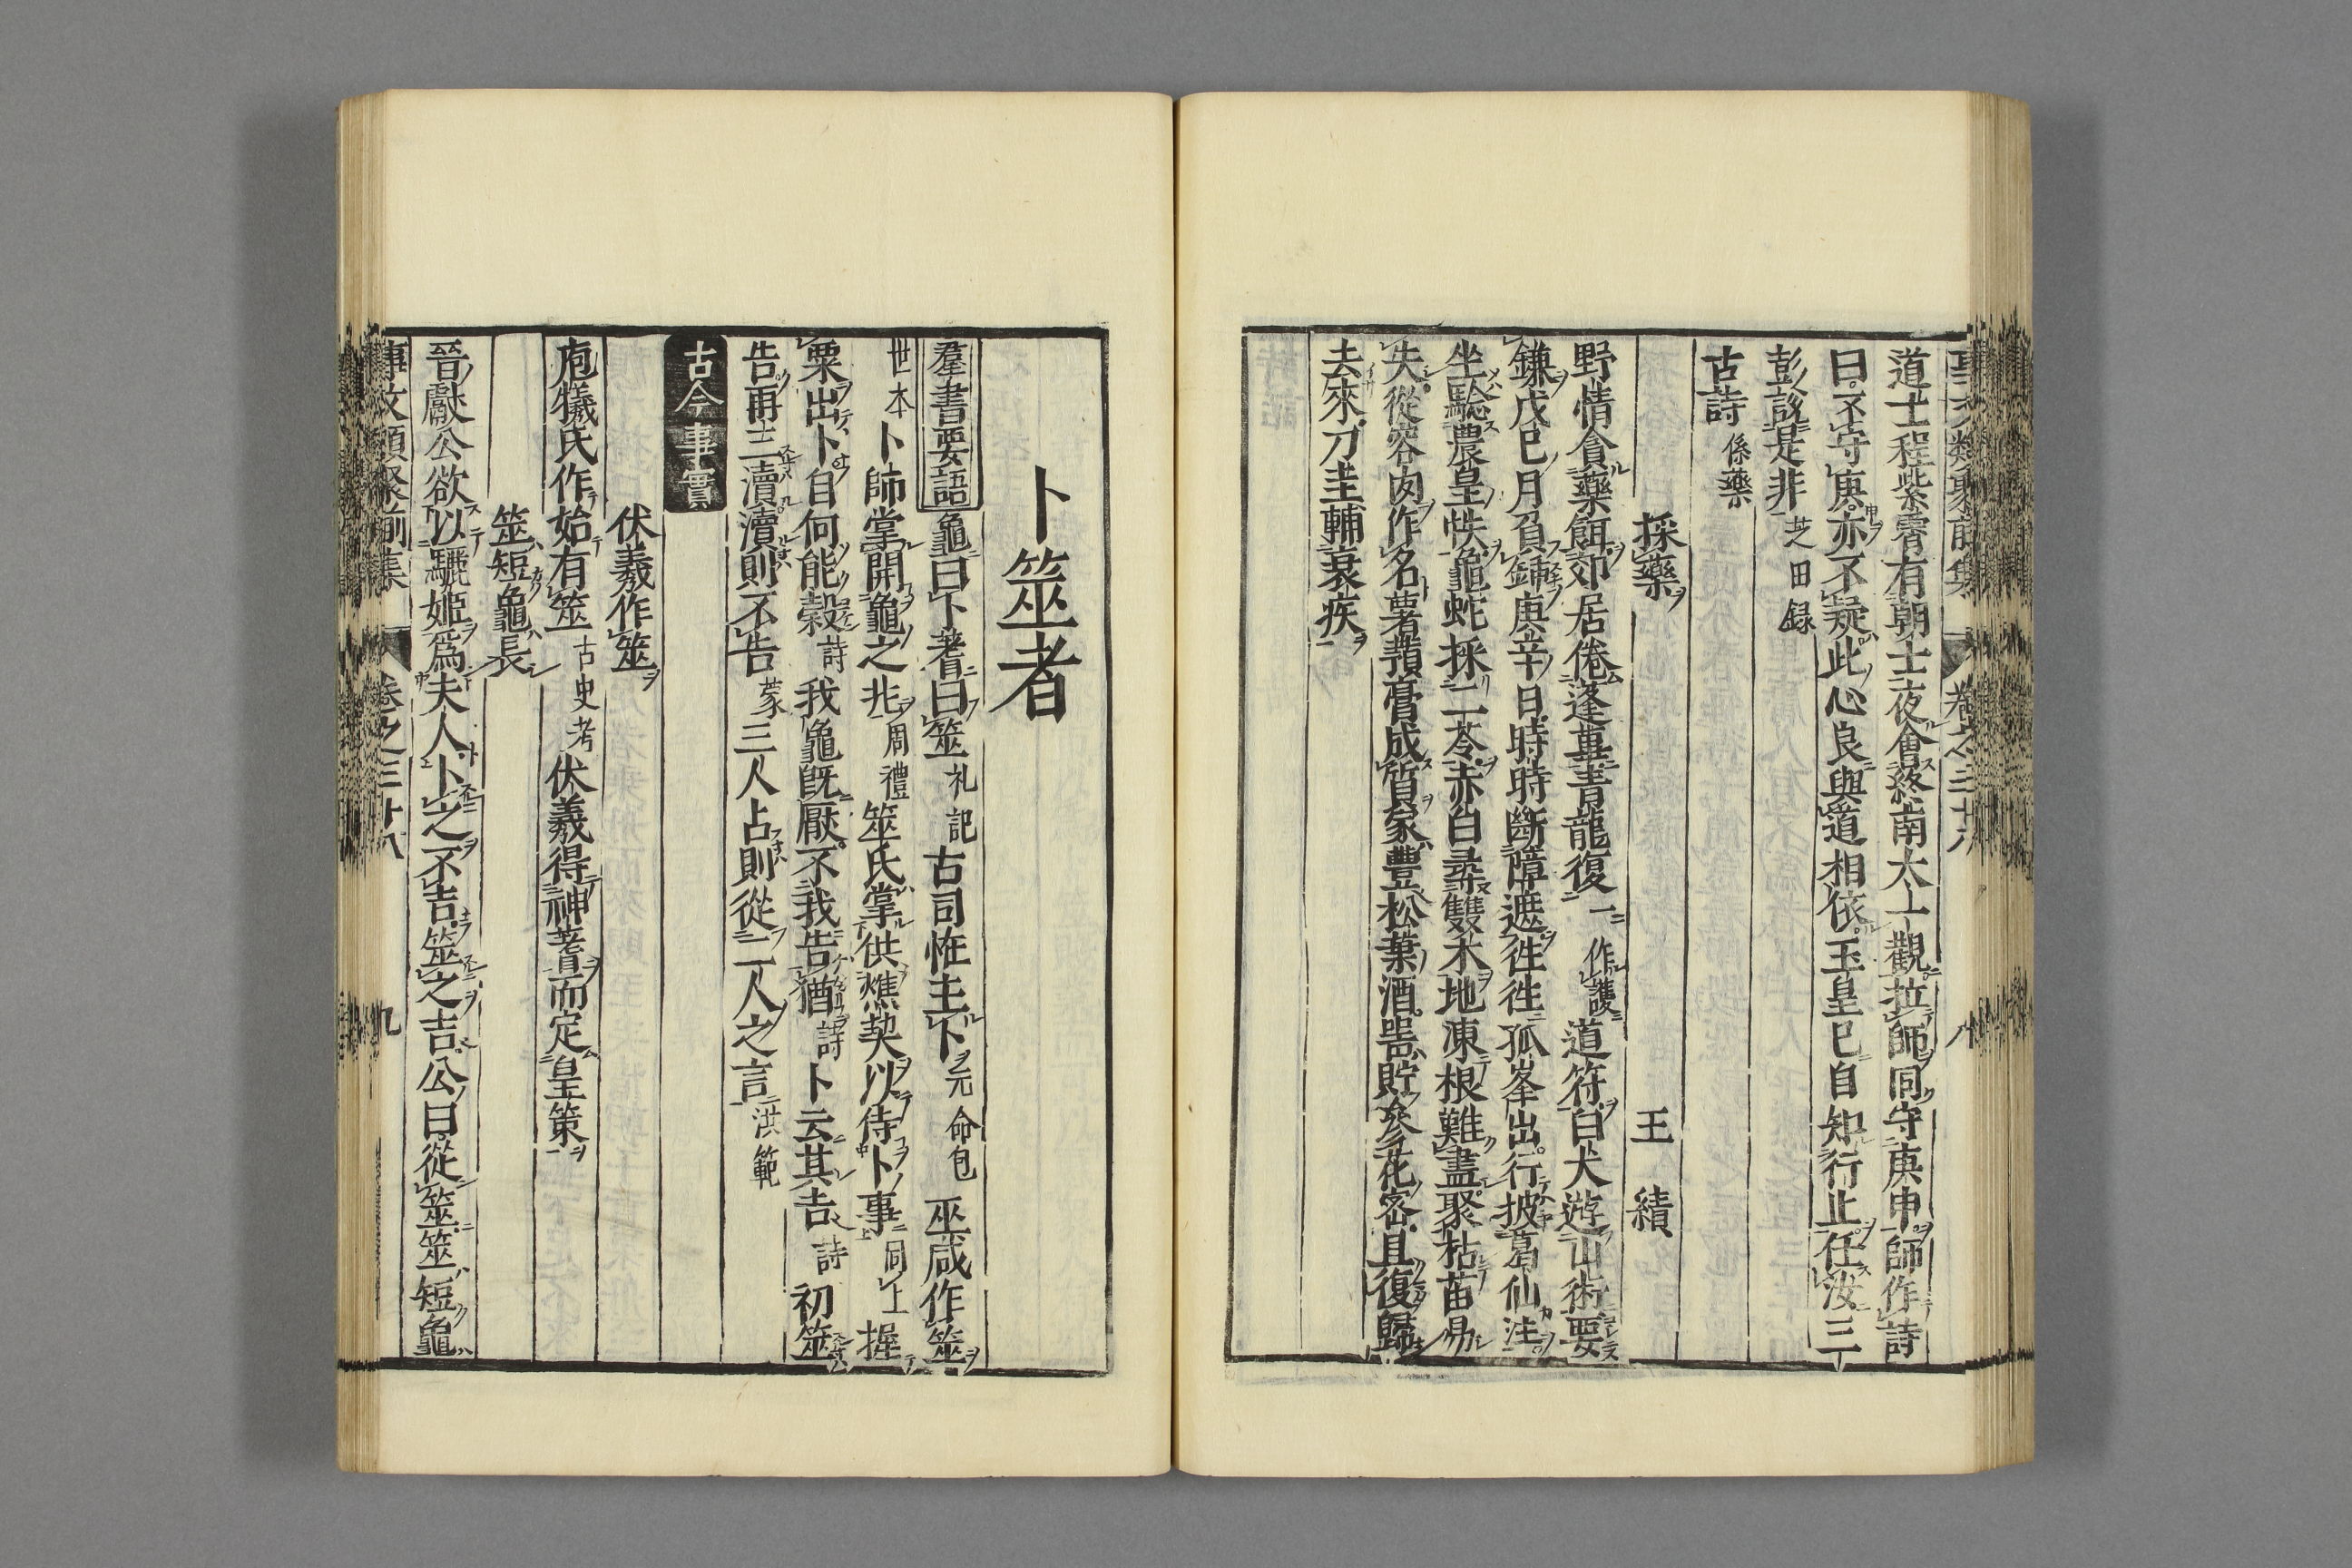 事文類聚前集 卷之三十八 八
道士程紫霄有朝士夜會終南太一觀拉師同守庚申師作詩
曰不守庚申亦不疑此心良與道相依玉皇已自知行止任汝三
彭說是非 芝田録
古詩 係藥
採藥 王 績
野情貪藥餌郊居倦蓬蓽青龍復一作護道符白犬遊山術要
鎌戊巳月負鍤庚辛日時時斷障遮徃徃孤峯出行披葛仙注
坐驗農皇帙龜蛇採二苓赤白尋雙朮地凍根難盡聚枯苗易
失從容肉作名薯蕷膏成質家豐松葉酒噐貯參花密且復歸
去來刀圭輔衰疾
卜筮者
羣書要語 龜曰卜蓍曰筮 礼記 古司恠主卜 元命包 巫咸作筮
世本 卜師掌開龜之兆 周禮 筮氏掌供燋契以待卜事 同上 握
粟出卜自何能榖 詩 我龜旣厭不我告猶 詩 卜云其吉 詩 初筮
告再三瀆瀆則不告 蒙 三人占則從二人之言 洪範
古今事實
伏羲作筮
庖犧氏作始有筮 古史考 伏羲得神蓍而定皇策
筮短龜長
晉獻公欲以驪姬爲夫人卜之不吉筮之吉公曰從筮筮短龜
事文類聚前集 卷之三十八 九